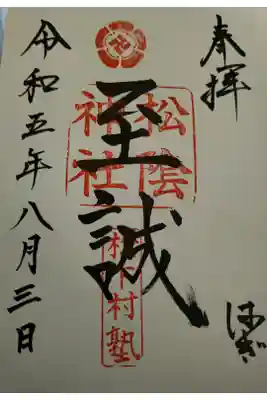 奉拝
はぎ
至誠
松陰
神社
松下村塾
令和五年八月三日